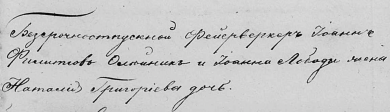 Безсрочноотпускной Фейерверкеръ Іоаннъ
Филиповъ Олейникъ и Іоанна Лебеды жена
Наталія Григоріева дочь.